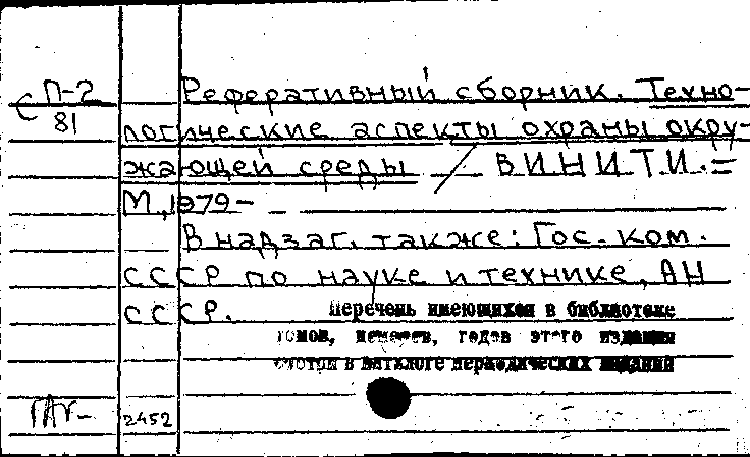 П-2 Реферативный сборник. Техно-
С
81 логические аспекты охраны окру-
жающей среды / ВИНИТИ. =
М., 1979 -
В надзаг. также: Гос. ком.
СССР по науке и технике, АН
СССР.
Перечень имеющихся в библиотеке
томов, номеров, годов этого издания
смотри в каталоге периодических изданий
2452